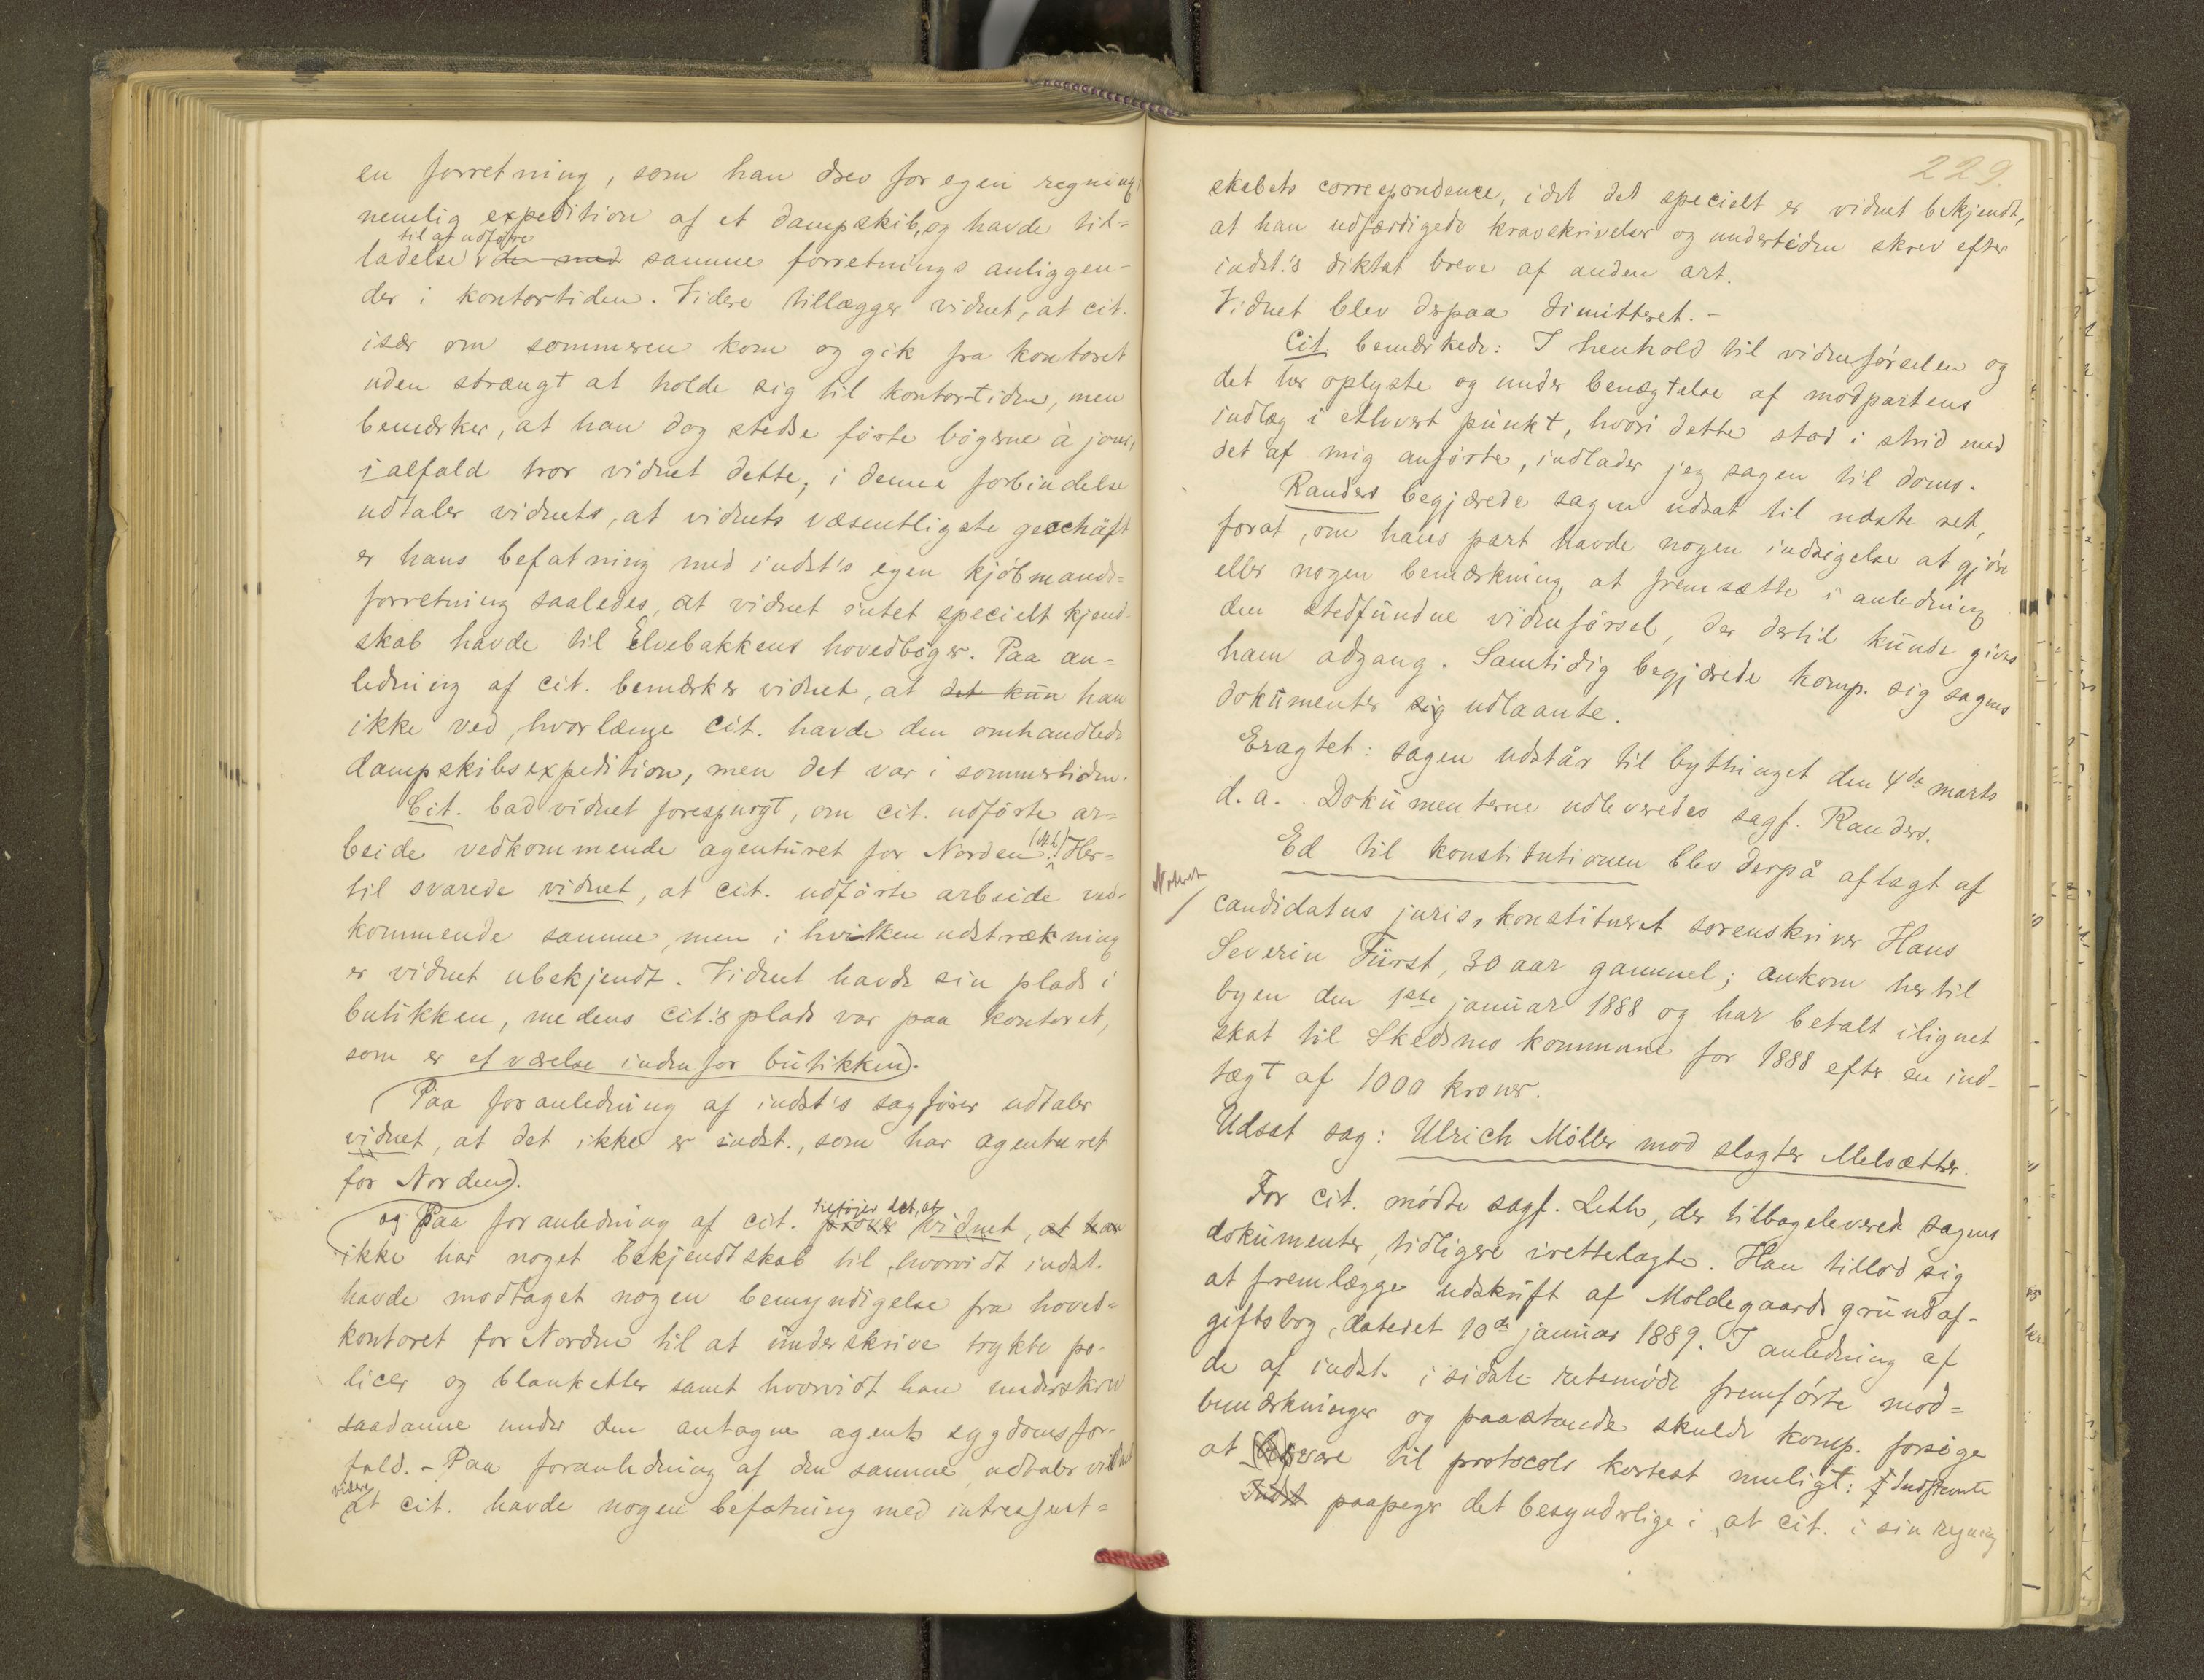 en forretning, som han drev for egen regning,
nemlig expedition af et dampskib, og havde til-
til at udføre
ladelse den med samme forretnings anliggen-
der i kontortiden. Videre tillægger vidnet, at cit.
især om sommeren kom og gik fra kontoret
uden strængt at holde sig til kontortiden, men
bemærker, at han dog stedse førte bøgerne à jour,
ialfald tror vidnet dette; i denne forbindelse
udtaler vidnets, at vidnets væsentligste geschäft
er hans befatning med indst's egen kjøbmands-
forretning saaledes, at vidnet intet specielt kjend-
skab havde til Elvebakkens hovedbøger. Paa an-
ledning af cit. bemærker vidnet, at det kun han
ikke ved, hvorlænge cit. havde den omhandlede
dampskibsexpedition, men det var i sommertiden.
Cit. bad vidnet forespurgt, om cit. udførte ar-
beide vedkommende agenturet for Norden. Her-
til svarede vidnet, at cit. udførte arbeide ved-
kommende samme, men i hvilken udstrækning
er vidnet ubekjendt. Vidnet havde sin plads i
butikken, medens cit.'s plads var paa kontoret,
som er et værelse indenfor butikken).
(Paa foranledning af indst's sagfører udtaler
vidnet, at det ikke er indst., som har agenturet
for Norden).
tilføjer det, at
(og Paa foranledning af cit. prover vidnet, at han
ikke har noget bekjendtskab til, hvorvidt indst.
havde modtaget nogen bemyndigelse fra hoved-
kontoret for Norden til at underskrive trykte po-
licer og blanketter samt hvorvidt han underskrev
saadanne under den antagne agents sygdomsfor-
fald. - Paa foranledning af den samme udtaler vidnet
videre
at cit. havde nogen befatning med intressent-
229.
skabets correspondence, idet det specielt er vidnet bekjendt,
at han udfærdigede kravskrivelser og undertiden skrev efter
indst.'s diktat breve af anden art.
Vidnet blev derpaa dimitteret. -
Cit. bemærkede: I henhold til vidneførselen og
det her oplyste og under benægtelse af modpartens
indlæg i ethvert punkt, hvori dette stod i strid med
det af mig anførte, indlader jeg sagen til doms.
Randers begjærede sagen udsat til næste ret,
forat, om hans part havde nogen indsigelse at gjøre
eller nogen bemærkning at fremsætte i anledning
den stedfundne vidneførsel, der dertil kunde gives
ham adgang. Samtidig begjærede komp. sig sagens
dokumenter sig udlaante.
Eragtet: sagen udstår til bythinget den 4de marts
d. a. Dokumenterne udleveredes sagf. Randers.
Ed til konstitutionen blev derpå aflagt af
Noteret
candidatus juris, konstitueret sorenskriver Hans
Severin Fürst, 30 aar gammel; ankom hertil
byen den 1ste januar 1888 og har betalt ilignet
skat til Skedsmo kommune for 1888 efter en ind-
tægt af 1000 kroner.
Udsat sag: Ulrich Møller mod slagter Melsætter.
For cit. mødte sagf. Leth, der tilbageleverede sagens
dokumenter, tidligere irettelagte. Han tillod sig
at fremlægge udskrift af Moldegaards grundaf-
giftsbog, dateret 10de januar 1889. I anledning af
de af indst. i sidste retsmøde fremførte mod-
bemærkninger og paastande skulde komp. forsøge
at svare til protocols kortest muligt: Indstevnte
Indst paapeger det besynderlige i, at cit. i sin regning